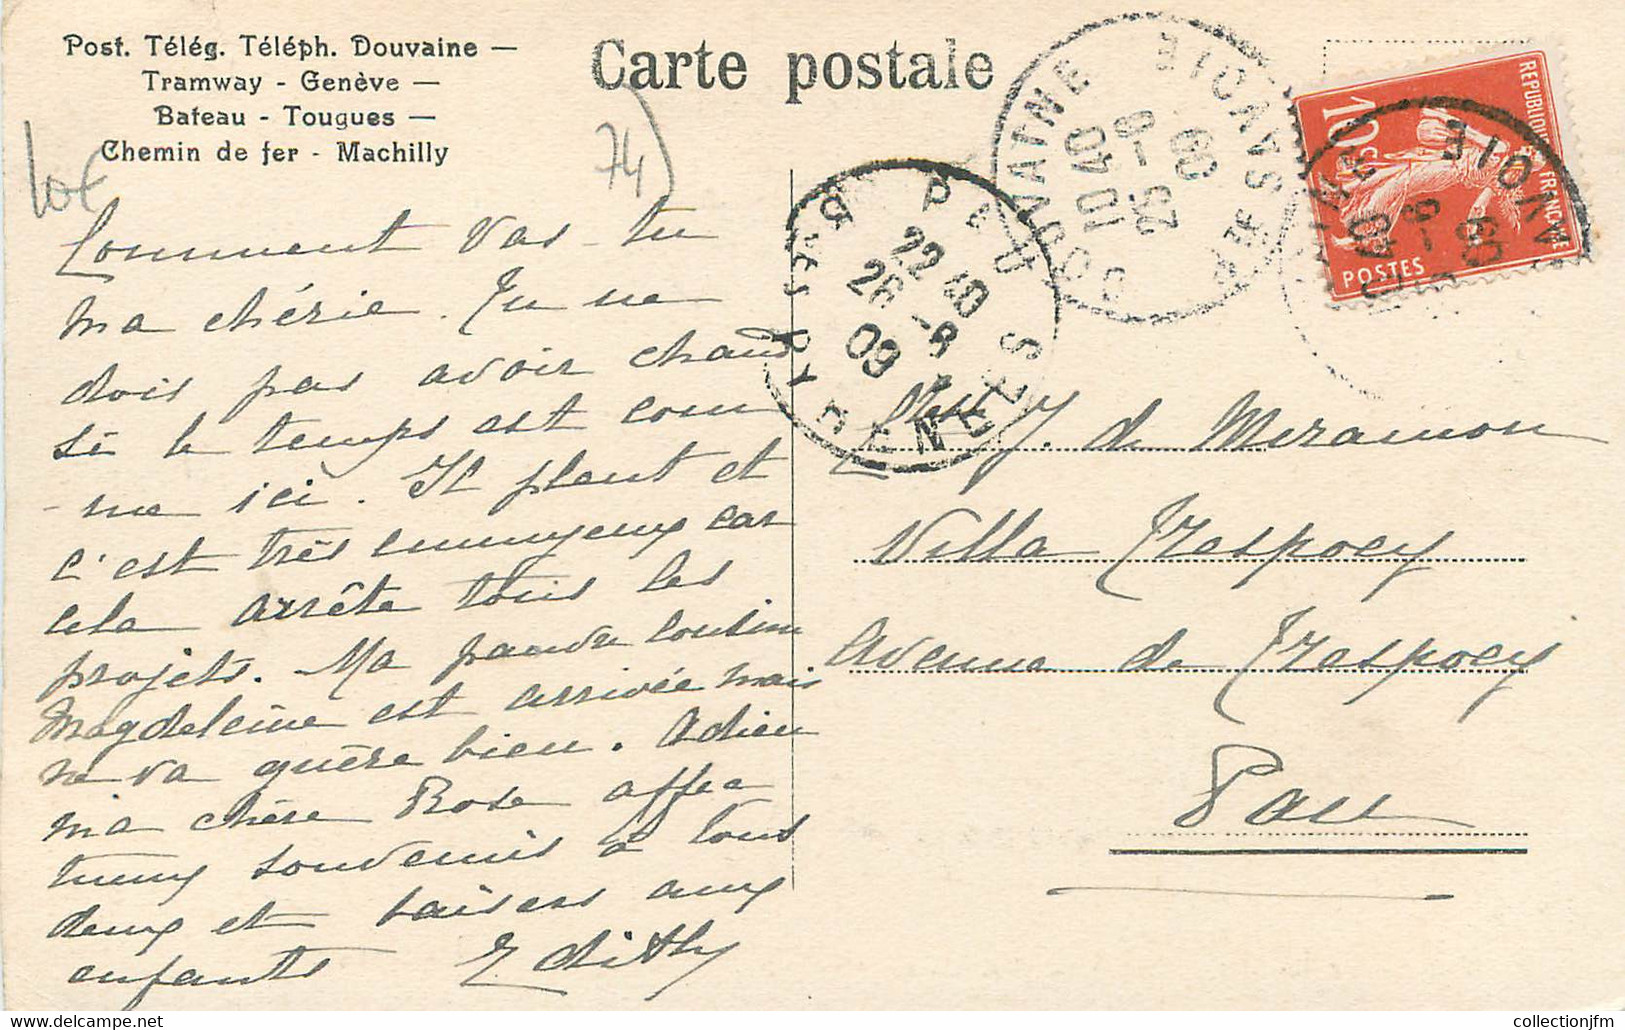 Post. Télég. Téléph. Douvaine —
Tramway - Genève —
Bateau - Tougues —
Chemin de fer - Machilly
Carte postale
10€
74)
Comment vas-tu
ma chérie. Tu ne
dois pas avoir chaud
si le temps est com
-me ici. Il pleut et
c'est très ennuyeux car
cela arrête tous les
projets. Ma pauvre cousine
Magdeleine est arrivée mais
ne va guère bien. Adieu
ma chère Rose affec
tueux souvenirs à tous
deux et baisers aux
enfants Edith
J. de Miramon
Villa Trespoey
Avenue de Trespoey
Pau
PAU
22 40
26 -8
09
BSES PYRENEES
DOUVAINE
10 40
25 -8
09
HTE SAVOIE
REPUBLIQUE FRANÇAISE
10c
POSTES
collectionjfm